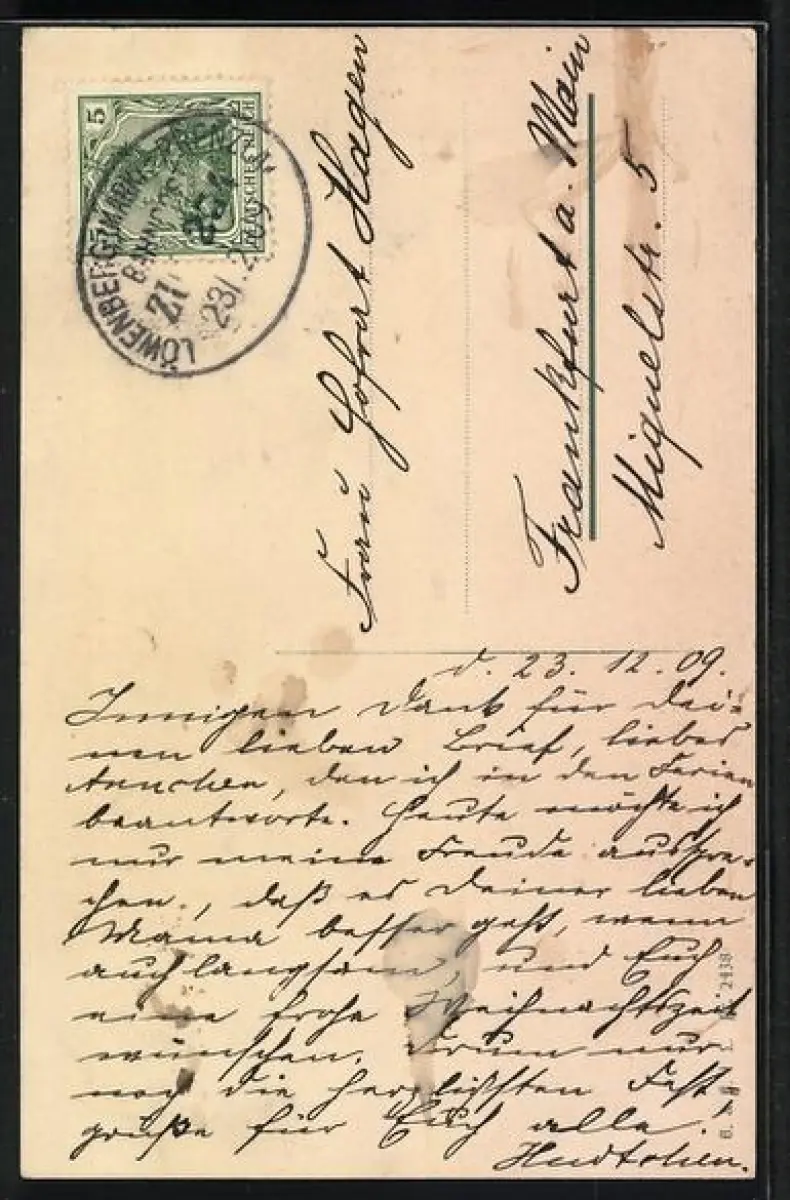 5
DEUTSCHES REICH
LÖWENBERG (MARK)-PRENZLAU
BAHNPOST
ZUG
23/.12.09
Frau Hofrat Hagen
Frankfurt a. Main
Miquelstr. 5
d. 23. 12. 09.
Innigen Dank für Dei-
nen lieben Brief, liebes
Aennchen, den ich in den Ferien
beantworte. Heute möchte ich
nur meine Freude ausspre-
chen, daß es Deiner lieben
Mama besser geht, wenn
auch langsam, und Euch
eine frohe Weihnachtszeit
wünschen. Drum nur
noch die herzlichsten Fest
grüße für Euch alle.
2438